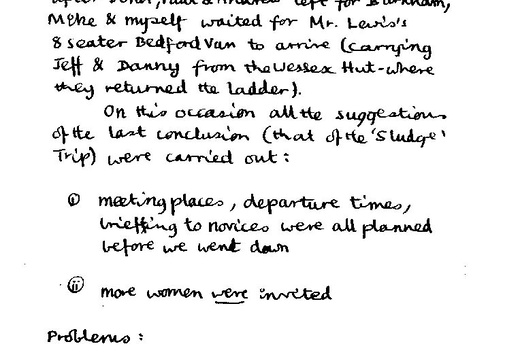 left for Burnham,
Mike & myself waited for Mr. Lewis's
8 seater Bedford Van to arrive (carrying
Jeff & Danny from the Wessex Hut - where
they returned the ladder).
On this occasion all the suggestions
of the last conclusion (that of the 'Sludge'
Trip) were carried out :
(i) meeting places, departure times,
briefing to novices were all planned
before we went down
(ii) more women were invited
Problems :